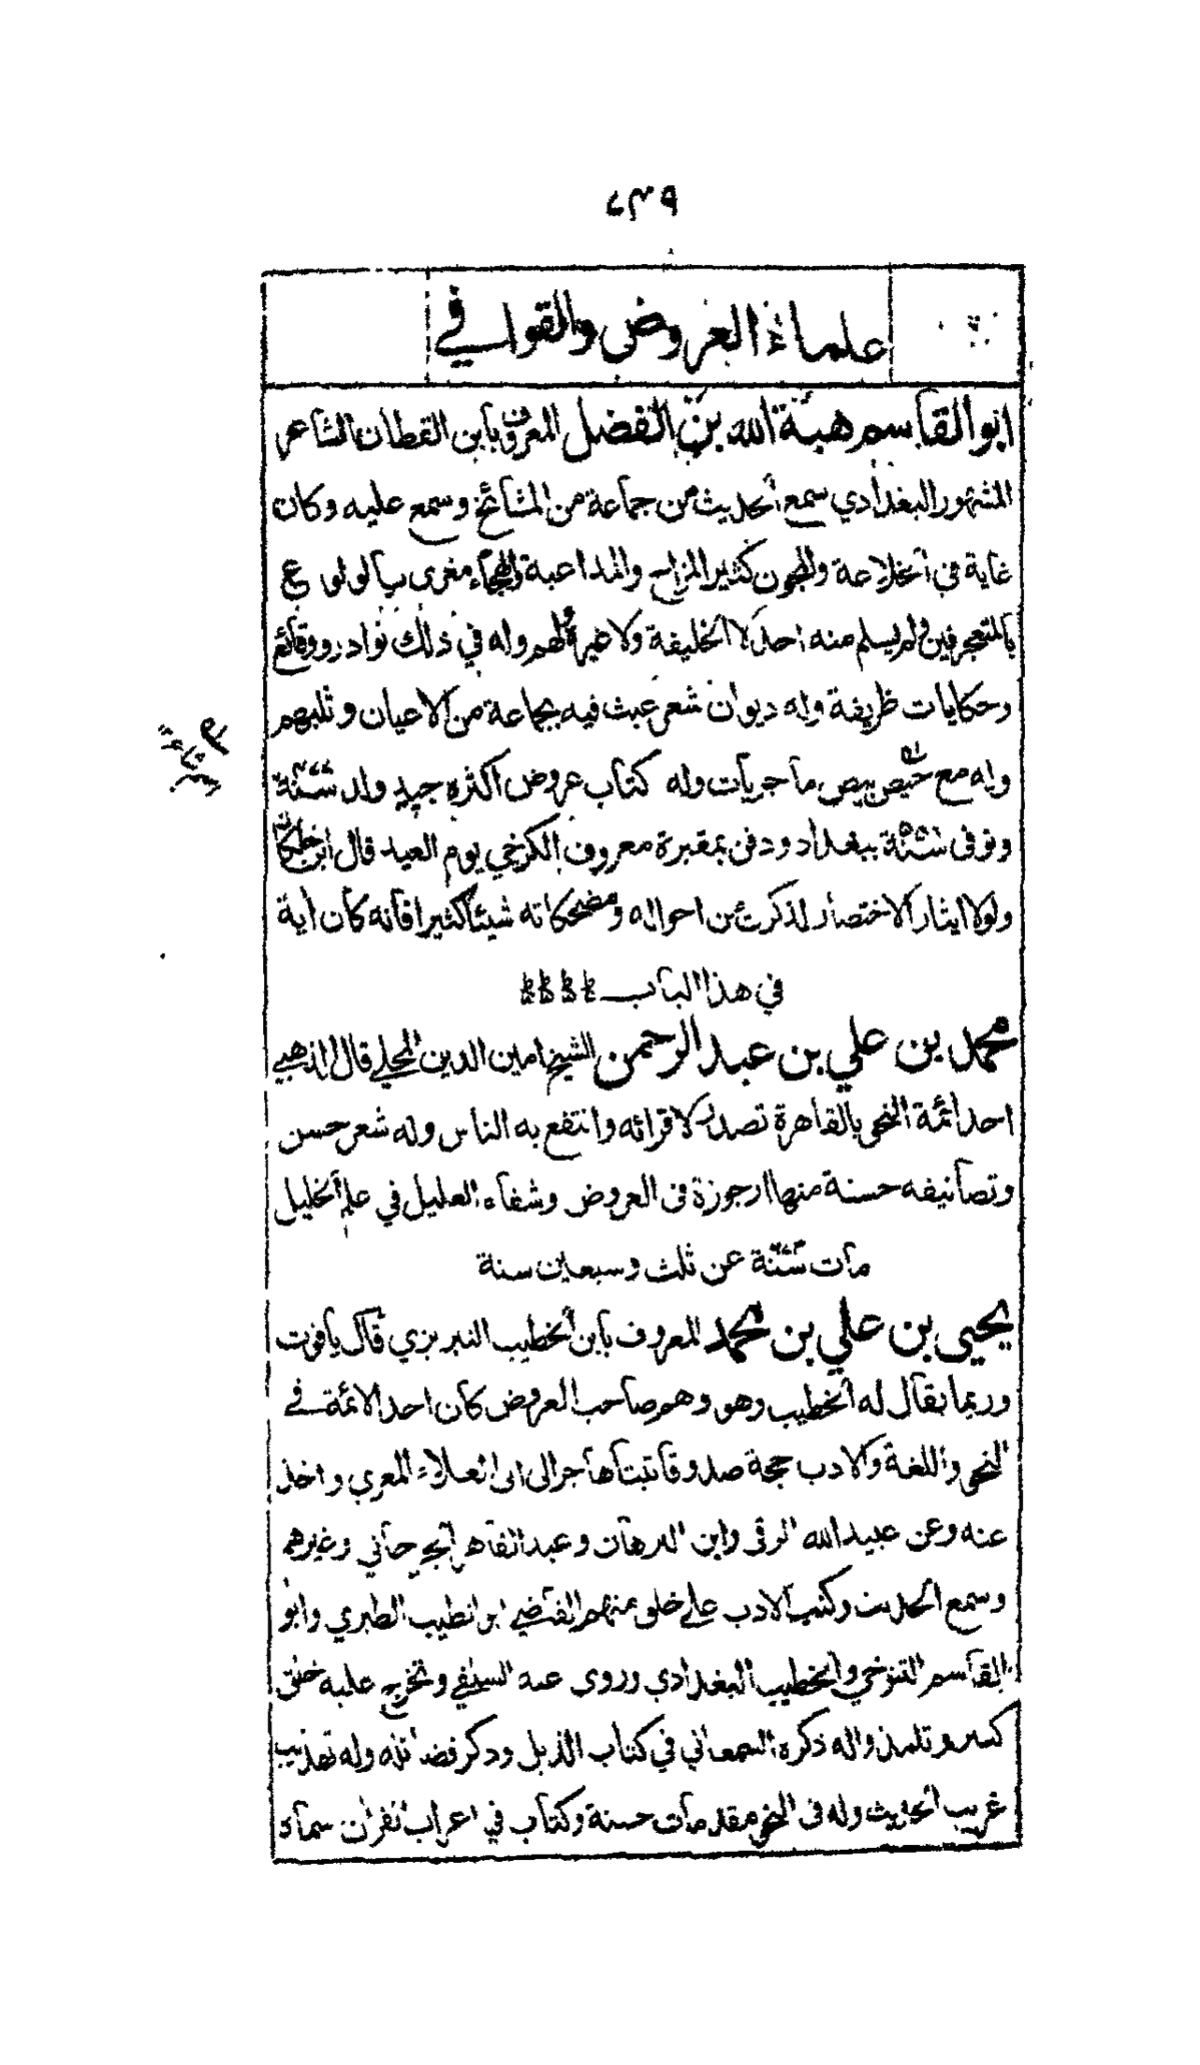 ٧٣٩
علماء العروض والقوافي
ابو القاسم هبة الله بن الفضل المعروف بابن القطان الشاعر
المشهور البغدادي سمع الحديث من جماعة من المشائخ وسمع عليه وكان
غاية في الخلاعة والمجون كثير المزاح والمداعبة والهجاء مغرى بالولوع
بالمتعجرفين ولم يسلم منه احد لا الخليفة ولا غيره لهم وله في ذلك نوادر ووقائع
وحكايات ظريفة وله ديوان شعر عبث فيه بجماعة من الاعيان وثلبهم
وله مع حيص بيص ماجريات وله كتاب عروض اكثره جيد ولد سنة
وتوفى سنة ببغداد ودفن بمقبرة معروف الكرخي يوم العيد قال ابن خلكان
ولولا ايثار الاختصار لذكرت من احواله ومضحكاته شيئا كثيرا فانه كان اية
في هذا الباب
محمد بن علي بن عبد الرحمن الشيخ امين الدين المحلي قال الذهبي
احد ائمة النحو بالقاهرة تصدر لاقرائه وانتفع به الناس وله شعر حسن
وتصانيفه حسنة منها ارجوزة في العروض وشفاء العليل في علم الخليل
مات سنة عن ثلث وسبعين سنة
يحيى بن علي بن محمد المعروف بابن الخطيب التبريزي قال ياقوت
وربما يقال له الخطيب وهو وهم صاحب العروض كان احد الائمة في
النحو واللغة والادب حجة صدوقا ثبتا هاجر الى ابي العلاء المعري واخذ
عنه وعن عبيد الله الرقى وابن الدهان وعبد القاهر الجرجاني وغيرهم
وسمع الحديث وكتب الادب على خلق منهم القاضي ابن الطيب الطبري وابو
القاسم التنوخي والخطيب البغدادي وروى عنه السلفي وتخرج عليه خلق
كثير وتلمذ واله ذكره السمعاني في كتاب الذيل وذكر فضائله وله تهذيب
غريب الحديث وله في النحو مقدمات حسنة وكتاب في اعراب القران سماه